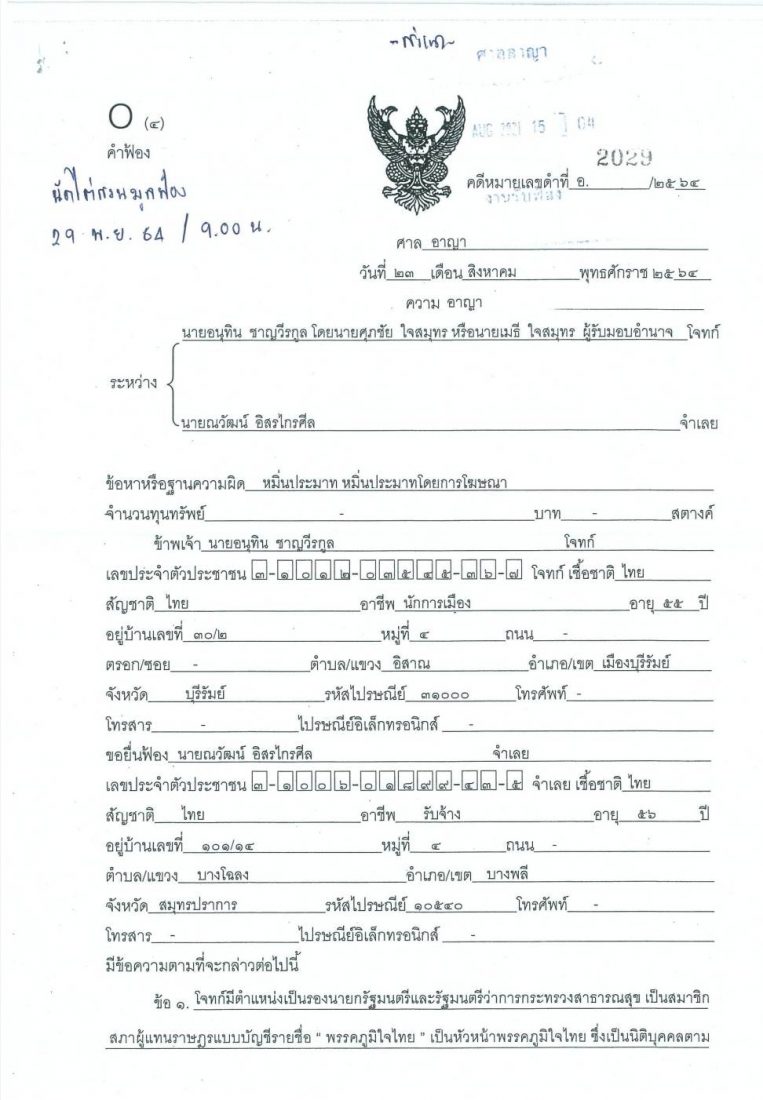 -สำเนา-
ศาลอาญา
O (๔)
คำฟ้อง
AUG 2021 15 04
2029
คดีหมายเลขดำที่ อ. /๒๕๖๔
งานรับฟ้อง
นัดไต่สวนมูลฟ้อง
29 พ.ย. 64 / 9.00 น.
ศาล อาญา
วันที่ ๒๓ เดือน สิงหาคม พุทธศักราช ๒๕๖๔
ความ อาญา
นายอนุทิน ชาญวีรกูล โดยนายศุภชัย ใจสมุทร หรือนายเมธี ใจสมุทร ผู้รับมอบอำนาจ โจทก์
ระหว่าง
นายณวัฒน์ อิสรไกรศีล จำเลย
ข้อหาหรือฐานความผิด หมิ่นประมาท หมิ่นประมาทโดยการโฆษณา
จำนวนทุนทรัพย์ - บาท - สตางค์
ข้าพเจ้า นายอนุทิน ชาญวีรกูล โจทก์
เลขประจำตัวประชาชน ๓-๑๐๑๒-๐๓๕๔๕-๓๖-๗ โจทก์ เชื้อชาติ ไทย
สัญชาติ ไทย อาชีพ นักการเมือง อายุ ๕๕ ปี
อยู่บ้านเลขที่ ๓๐/๒ หมู่ที่ ๔ ถนน -
ตรอก/ซอย - ตำบล/แขวง อิสาณ อำเภอ/เขต เมืองบุรีรัมย์
จังหวัด บุรีรัมย์ รหัสไปรษณีย์ ๓๑๐๐๐ โทรศัพท์ -
โทรสาร - ไปรษณีย์อิเล็กทรอนิกส์ -
ขอยื่นฟ้อง นายณวัฒน์ อิสรไกรศีล จำเลย
เลขประจำตัวประชาชน ๓-๑๐๐๖-๐๑๘๙๙-๔๓-๕ จำเลย เชื้อชาติ ไทย
สัญชาติ ไทย อาชีพ รับจ้าง อายุ ๕๖ ปี
อยู่บ้านเลขที่ ๑๐๑/๑๔ หมู่ที่ ๔ ถนน -
ตำบล/แขวง บางโฉลง อำเภอ/เขต บางพลี
จังหวัด สมุทรปราการ รหัสไปรษณีย์ ๑๐๕๔๐ โทรศัพท์ -
โทรสาร - ไปรษณีย์อิเล็กทรอนิกส์ -
มีข้อความตามที่จะกล่าวต่อไปนี้
ข้อ ๑. โจทก์มีตำแหน่งเป็นรองนายกรัฐมนตรีและรัฐมนตรีว่าการกระทรวงสาธารณสุข เป็นสมาชิก
สภาผู้แทนราษฎรแบบบัญชีรายชื่อ “ พรรคภูมิใจไทย ” เป็นหัวหน้าพรรคภูมิใจไทย ซึ่งเป็นนิติบุคคลตาม